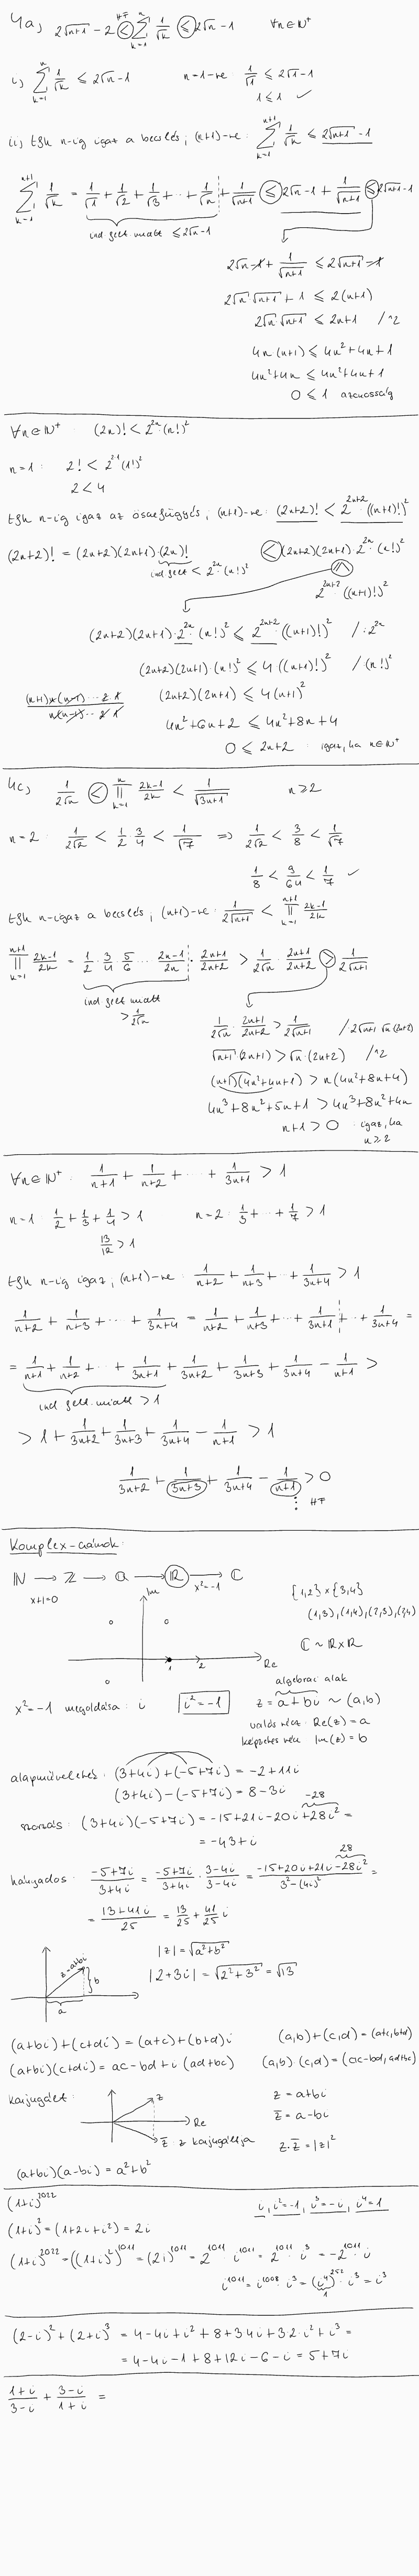 4a, 2√(n+1) - 2 < ∑_{k=1}^{n} 1/√k ≤ 2√n - 1 ∀n∈ℕ⁺
HF
i, ∑_{k=1}^{n} 1/√k ≤ 2√n - 1 n=1-re 1/√1 ≤ 2√1 - 1
1 ≤ 1 ✓
ii, tfh n-ig igaz a becslés, (n+1)-re: ∑_{k=1}^{n+1} 1/√k ≤ 2√(n+1) - 1
∑_{k=1}^{n+1} 1/√k = 1/√1 + 1/√2 + 1/√3 + ... + 1/√n + 1/√(n+1) ≤ 2√n - 1 + 1/√(n+1) ≤ 2√(n+1) - 1
ind felt. miatt ≤ 2√n - 1
2√n - 1 + 1/√(n+1) ≤ 2√(n+1) - 1
2√n·√(n+1) + 1 ≤ 2(n+1)
2√n·√(n+1) ≤ 2n+1 /^2
4n(n+1) ≤ 4n² + 4n + 1
4n² + 4n ≤ 4n² + 4n + 1
0 ≤ 1 azonosság
∀n∈ℕ⁺ (2n)! < 2^{2n}·(n!)²
n=1: 2! < 2^{2·1}(1!)²
2 < 4
tfh n-ig igaz az összefüggés, (n+1)-re: (2n+2)! < 2^{2n+2}·((n+1)!)²
(2n+2)! = (2n+2)(2n+1)·(2n)! < (2n+2)(2n+1)·2^{2n}·(n!)²
ind felt < 2^{2n}·(n!)² ≤ 2^{2n+2}·((n+1)!)²
(2n+2)(2n+1)·2^{2n}·(n!)² ≤ 2^{2n+2}·((n+1)!)² /:2^{2n}
(2n+2)(2n+1)·(n!)² ≤ 4((n+1)!)² /:(n!)²
(n+1)·n·(n-1)···2·1 / n(n-1)···2·1 (2n+2)(2n+1) ≤ 4(n+1)²
4n² + 6n + 2 ≤ 4n² + 8n + 4
0 ≤ 2n+2 igaz, ha n∈ℕ⁺
4c, 1/(2√n) < ∏_{k=1}^{n} (2k-1)/2k < 1/√(3n+1) n ≥ 2
n=2: 1/(2√2) < 1/2·3/4 < 1/√7 ⇒ 1/(2√2) < 3/8 < 1/√7
1/8 < 9/64 < 1/7 ✓
tfh n-igaz a becslés, (n+1)-re: 1/(2√(n+1)) < ∏_{k=1}^{n+1} (2k-1)/2k
∏_{k=1}^{n+1} (2k-1)/2k = 1/2·3/4·5/6 ... (2n-1)/2n · (2n+1)/(2n+2) > 1/(2√n)·(2n+1)/(2n+2) > 1/(2√(n+1))
ind felt miatt
> 1/(2√n)
1/(2√n)·(2n+1)/(2n+2) > 1/(2√(n+1)) /·2√(n+1)·√n·(2n+2)
√(n+1)·(2n+1) > √n·(2n+2) /^2
(n+1)(4n²+4n+1) > n(4n²+8n+4)
4n³ + 8n² + 5n + 1 > 4n³ + 8n² + 4n
n+1 > 0 igaz, ha
n ≥ 2
∀n∈ℕ⁺ 1/(n+1) + 1/(n+2) + ... + 1/(3n+1) > 1
n=1: 1/2 + 1/3 + 1/4 > 1 n=2: 1/3 + ... + 1/7 > 1
13/12 > 1
tfh n-ig igaz, (n+1)-re: 1/(n+2) + 1/(n+3) + ... + 1/(3n+4) > 1
1/(n+2) + 1/(n+3) + ... + 1/(3n+4) = 1/(n+2) + 1/(n+3) + ... + 1/(3n+1) + ... + 1/(3n+4) =
= 1/(n+1) + 1/(n+2) + ... + 1/(3n+1) + 1/(3n+2) + 1/(3n+3) + 1/(3n+4) - 1/(n+1) >
ind felt. miatt > 1
> 1 + 1/(3n+2) + 1/(3n+3) + 1/(3n+4) - 1/(n+1) > 1
1/(3n+2) + 1/(3n+3) + 1/(3n+4) - 1/(n+1) > 0
⋮ HF
Komplex számok:
ℕ → ℤ → ℚ → ℝ → ℂ
x+1=0 x²=-1
{1,2}×{3,4}
(1,3),(1,4),(2,3),(2,4)
Im
ℂ ~ ℝ×ℝ
1 2 Re
algebrai alak
x²=-1 megoldása: i i²=-1 z = a+bi ~ (a,b)
valós rész: Re(z) = a
képzetes rész Im(z) = b
alapműveletek: (3+4i) + (-5+7i) = -2+11i
(3+4i) - (-5+7i) = 8-3i
-28
szorzás: (3+4i)(-5+7i) = -15+21i-20i+28i² =
= -43+i
28
hányados: (-5+7i)/(3+4i) = (-5+7i)/(3+4i)·(3-4i)/(3-4i) = (-15+20i+21i-28i²)/(3²-(4i)²) =
= (13+41i)/25 = 13/25 + 41/25 i
z=a+bi b a
|z| = √(a²+b²)
|2+3i| = √(2²+3²) = √13
(a+bi)+(c+di) = (a+c)+(b+d)i (a,b)+(c,d)=(a+c,b+d)
(a+bi)(c+di) = ac-bd+i(ad+bc) (a,b)·(c,d)=(ac-bd,ad+bc)
konjugált: z Re z̄: z konjugáltja
z = a+bi
z̄ = a-bi
z·z̄ = |z|²
(a+bi)(a-bi) = a²+b²
(1+i)^{2022} i, i²=-1, i³=-i, i⁴=1
(1+i)² = (1+2i+i²) = 2i
(1+i)^{2022} = ((1+i)²)^{1011} = (2i)^{1011} = 2^{1011}·i^{1011} = 2^{1011}·i³ = -2^{1011}·i
i^{1011} = i^{1008}·i³ = (i⁴)^{252}·i³ = i³
1
(2-i)² + (2+i)³ = 4-4i+i²+8+3·4i+3·2·i²+i³ =
= 4-4i-1+8+12i-6-i = 5+7i
(1+i)/(3-i) + (3-i)/(1+i) =